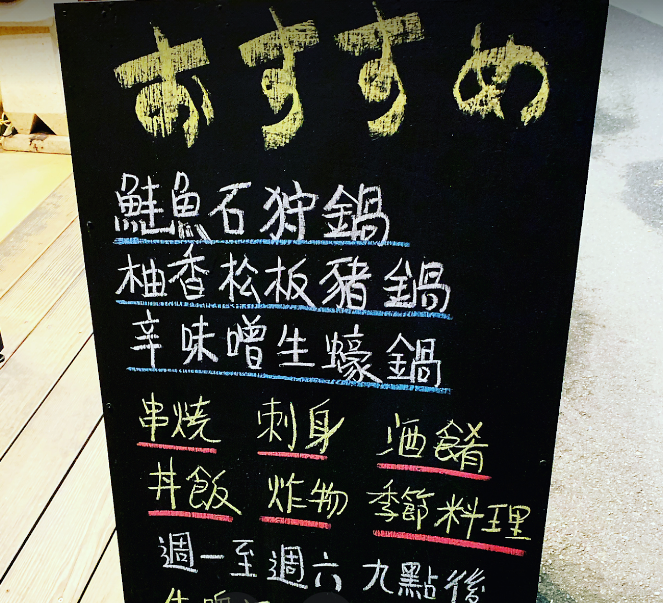 おすすめ
鮭魚石狩鍋
柚香松板豬鍋
辛味噌生蠔鍋
串燒 刺身 酒餚
丼飯 炸物 季節料理
週一至週六 九點後